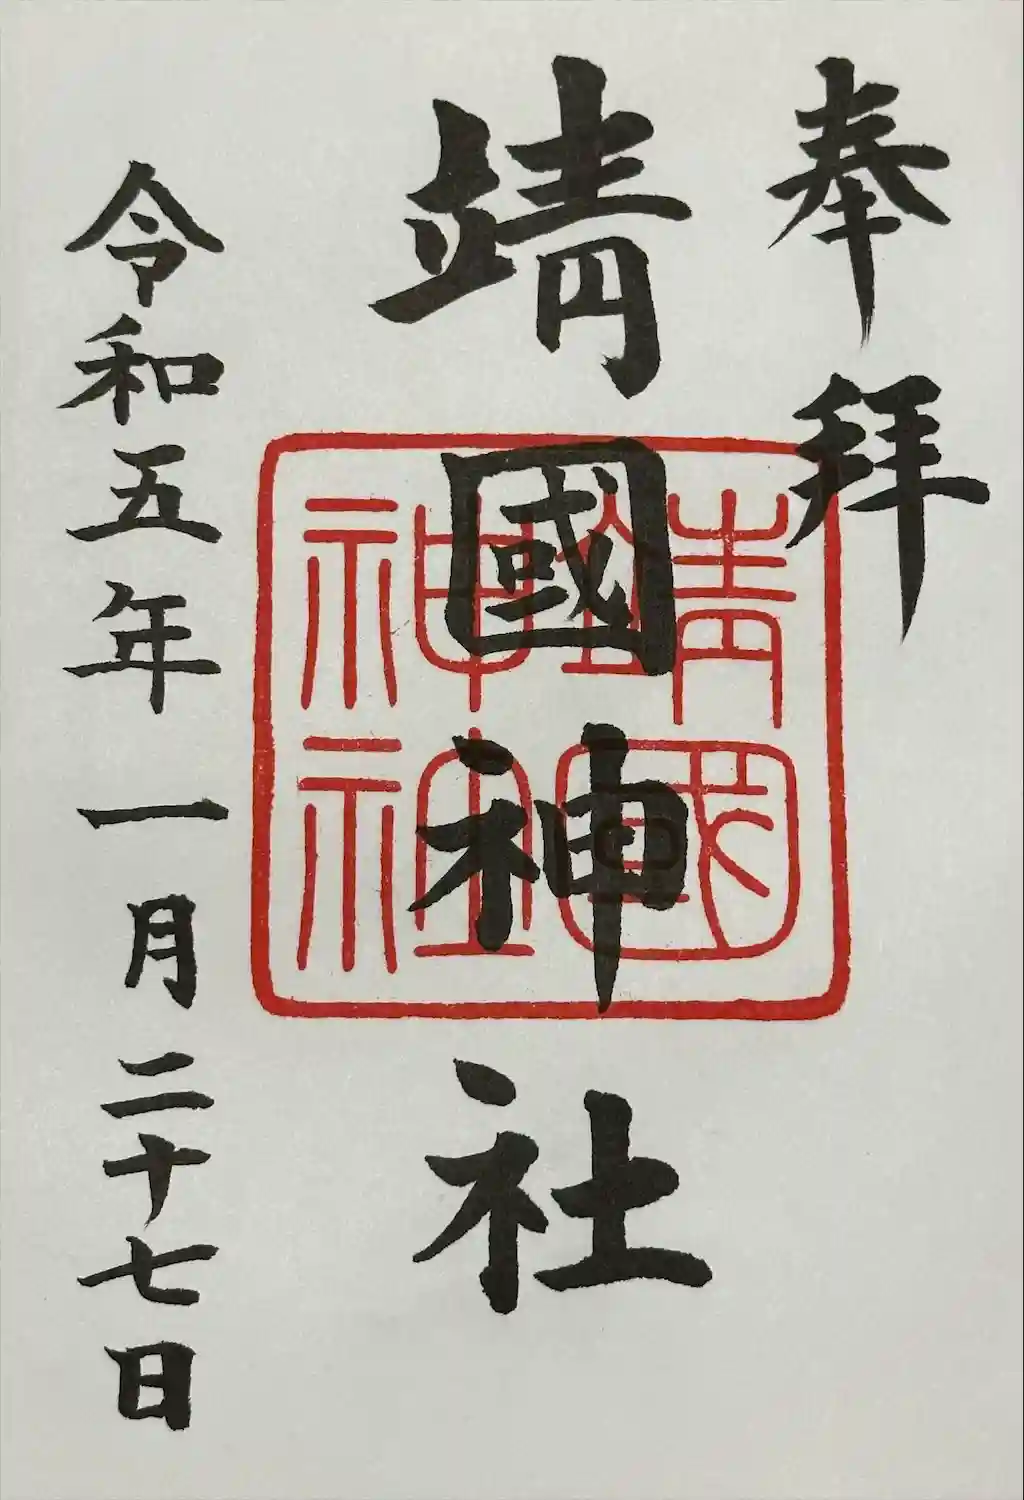 奉拝
靖國神社
靖國神社
令和五年一月二十七日